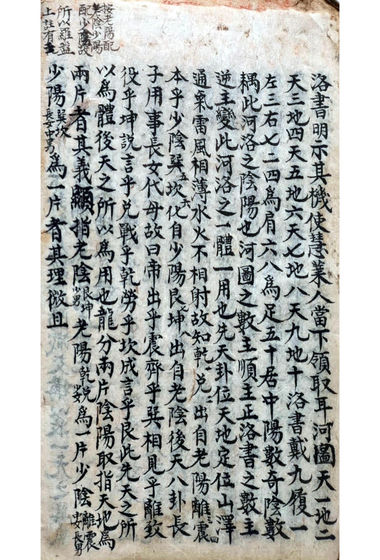 洛書明示其機使慧業人當下領取耳河圖天一地二
天三地四天五地六天七地八天九地十洛書戴九履一
左三右七二四為肩六八為足五十居中陽數奇陰數
耦此河洛之陰陽也河圖之數主順主正洛書之數主
逆主變此河洛之一體一用也先天卦位天地定位山澤
通氣雷風相薄水火不相射故知乾兌出自老陽離震
本乎少陰巽坎化自少陽艮坤出自老陰後天八卦長
子用事長女代母故曰帝出乎震齊乎巽相見乎離致
役乎坤說言乎兌戰乎乾勞乎坎成言乎艮此先天之所
以為體後天之所以為用也龍分兩片陰陽取指天地為
兩片者其義顯指老陰艮坤老陽乾兌為一片少陰離震長男
少陽巽坎長女中男為一片者其理微且
按老陽配
老陰少陽
配少陰
所以雞盤
上註有